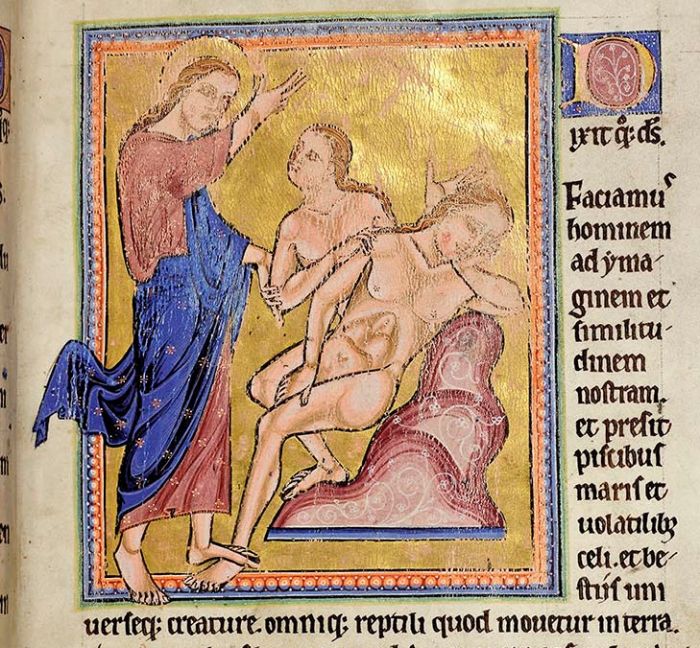 Dixit q; ds.
Faciamus
hominem
ad yma
ginem et
similitu
dinem
nostram.
et presit
piscibus
maris et
uolatilib;
celi. et be
stiis uni
uerseq; creature. omniq; reptili quod mouetur in terra.